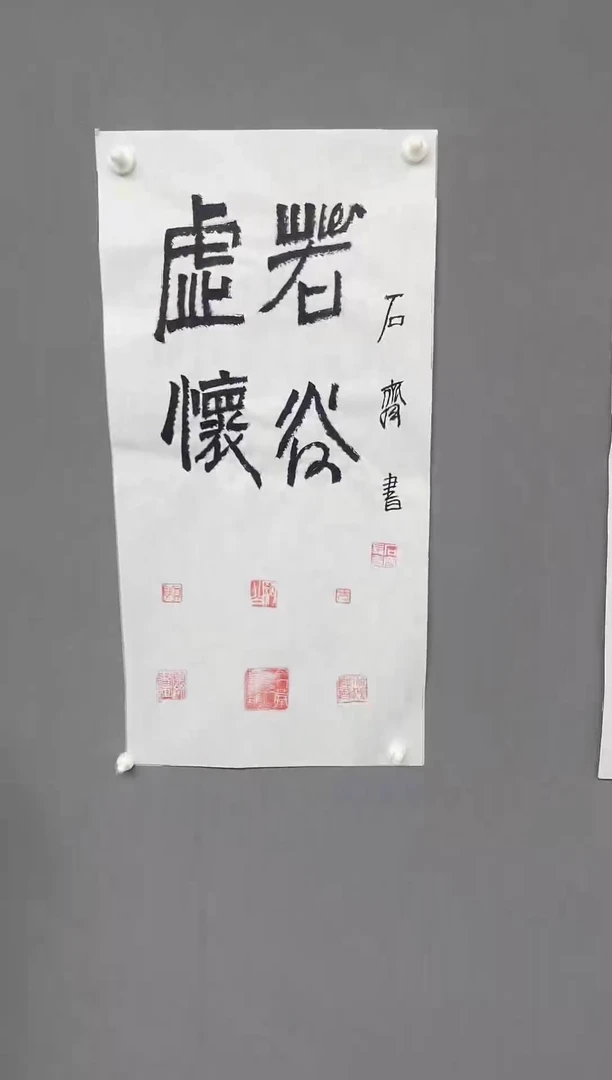 虛懷
若谷
石齋書